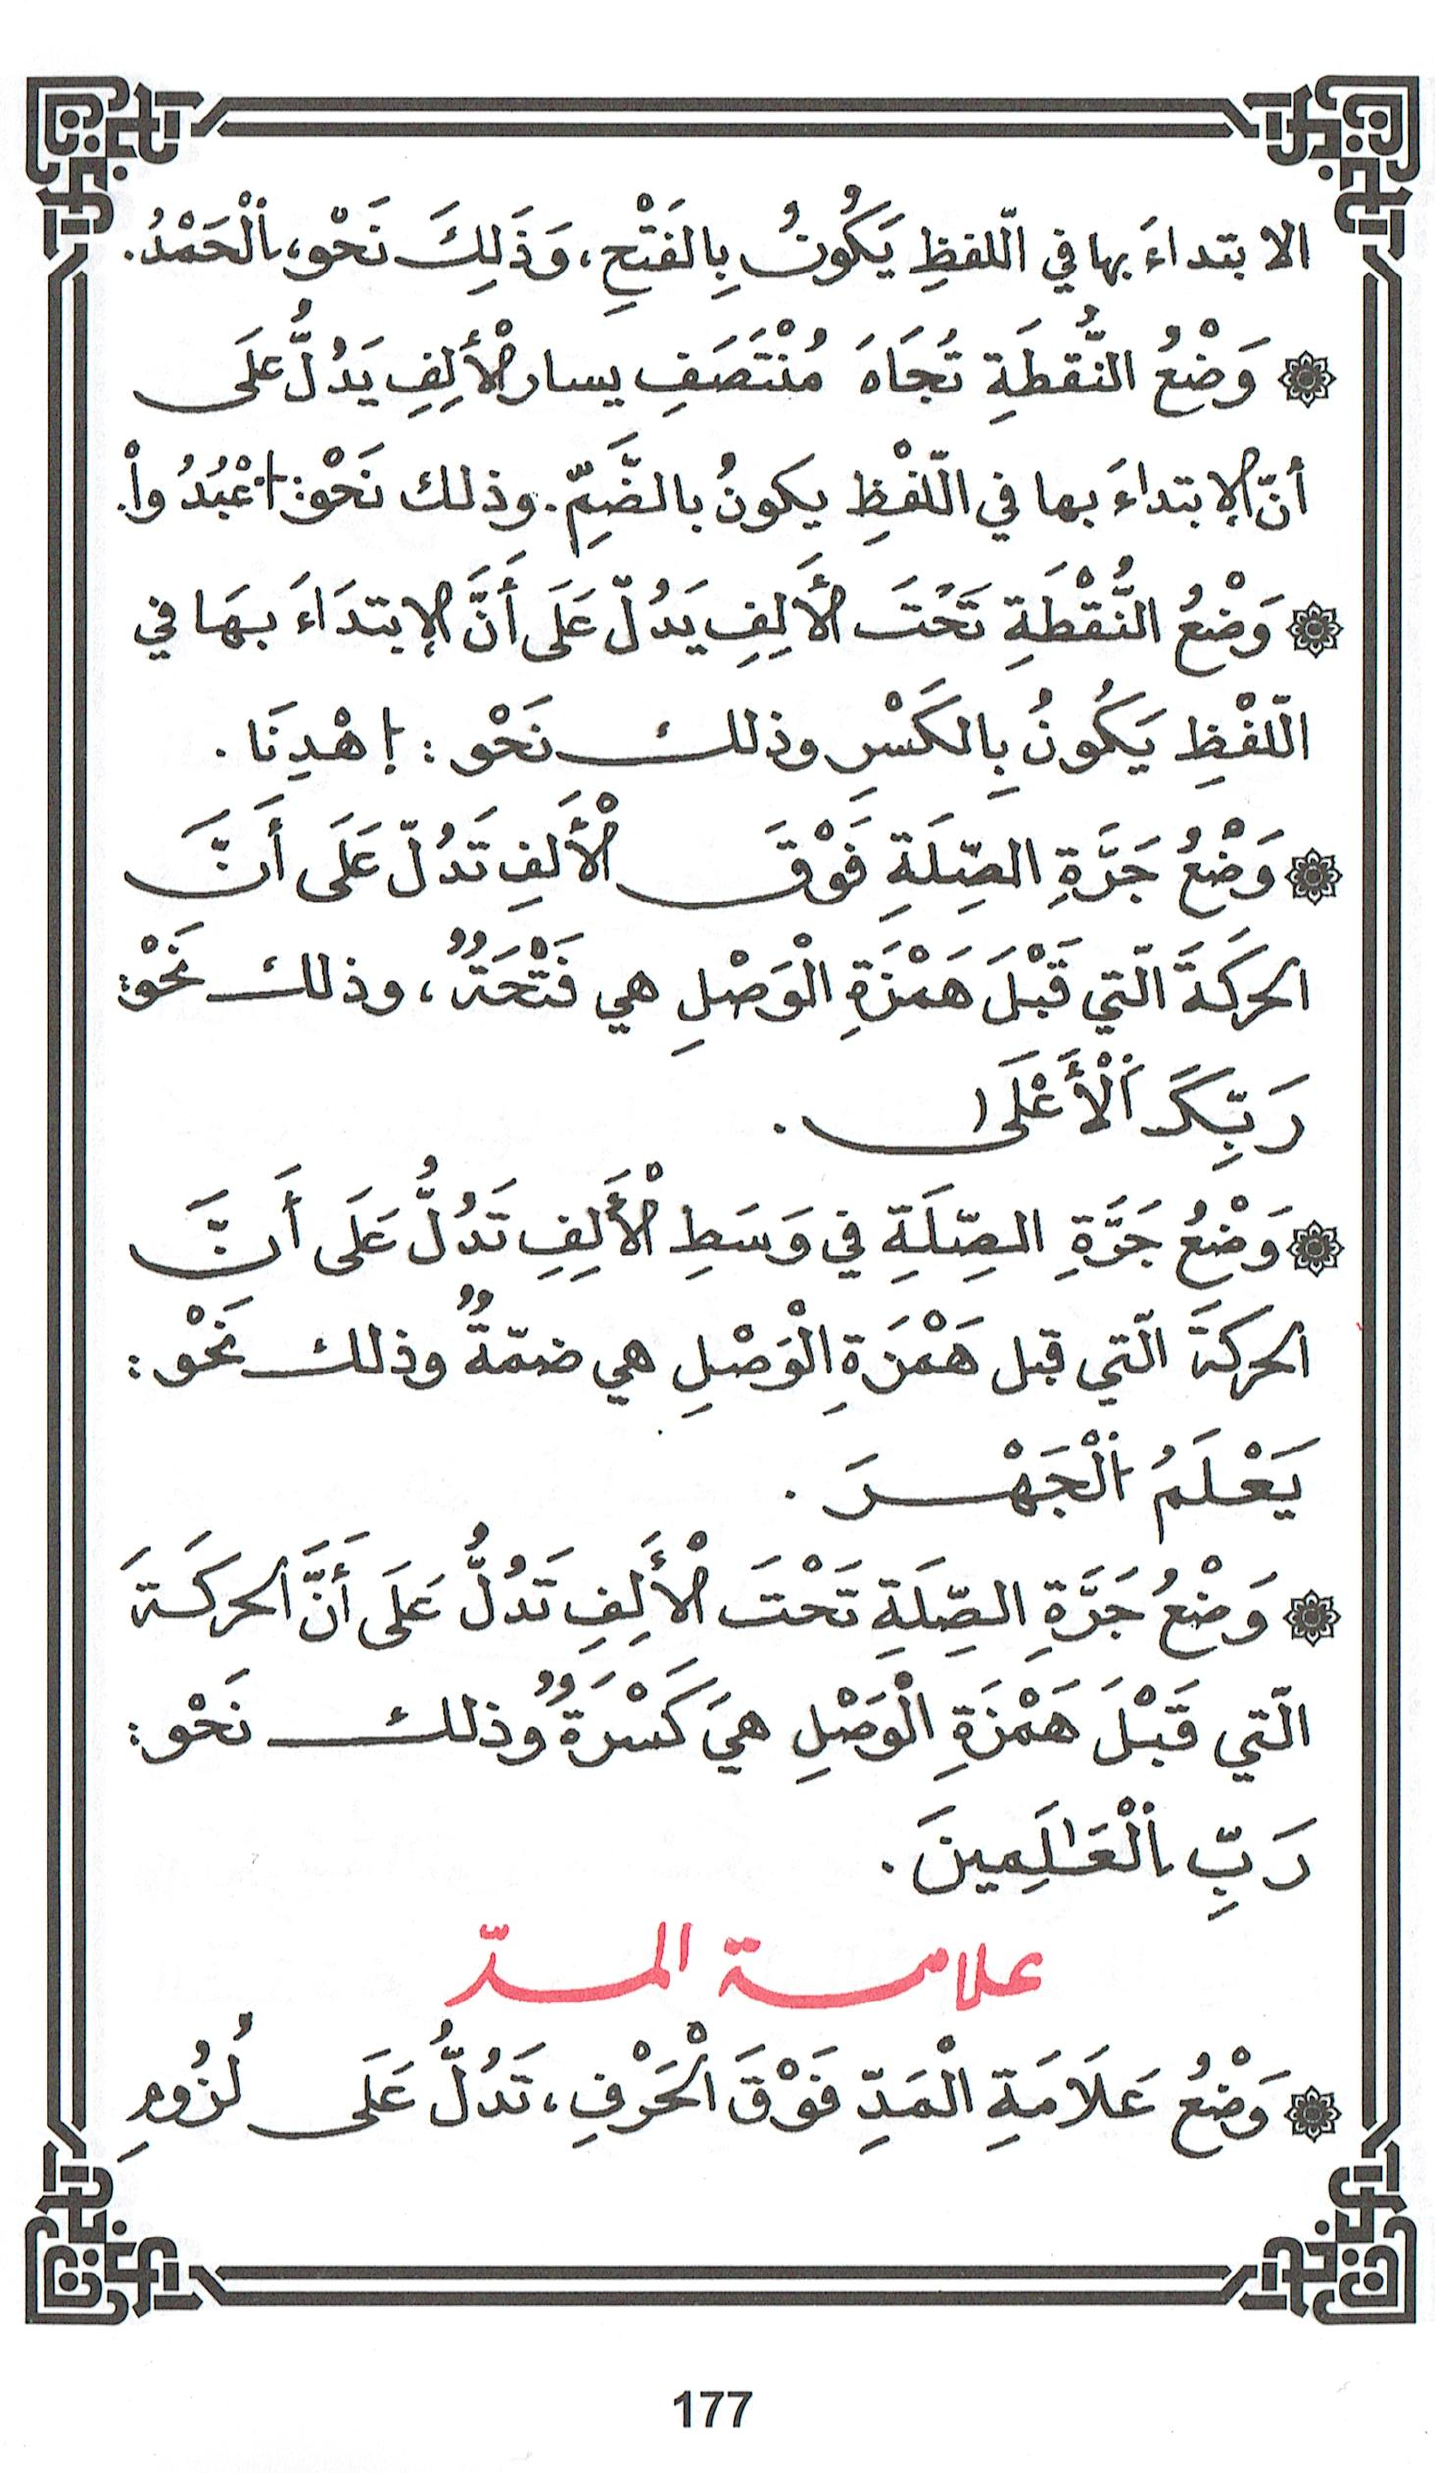 الابتداءَ بها في اللّفظِ يَكُونُ بِالفَتْحِ، وَذَلِكَ نَحْو، اَ۬لْحَمْدُ.
وَضْعُ النُّقطَةِ تُجَاهَ مُنْتَصَفِ يسار الْأَلِفِ يَدُلُّ عَلَى
أنّ الإبتداءَ بها في اللّفْظِ يكونُ بالضَّمِّ. وذلك نَحْوَ: اُ۟عْبُدُواْ.
وَضْعُ النُّقْطَةِ تَحْتَ الأَلِفِ يَدُلّ عَلَى أَنَّ الإبتدَاءَ بهَا في
اللّفْظِ يَكُونُ بِالكَسْرِ وذلك نَحْو : اِ۪هْدِنَا .
وَضْعُ جَرَّةِ الصِّلَةِ فَوْقَ الْأَلَفِ تَدُلّ عَلَى أَنَّ
الحركَةَ الّتي قَبْلَ هَمْزَةِ الْوَصْلِ هي فَتْحَةٌ، وذلك نَحْوَ:
رَبِّكَ اَ۬لْأَعْلَى .
وَضْعُ جَرَّةِ الصِّلَةِ في وَسَطِ الْأَلِفِ تَدُلُّ عَلَى أَنَّ
الحركةَ الّتي قبل هَمْزَةِ الْوَصْلِ هي ضمّةٌ وذلك نَحْو :
يَعْلَمُ اُ۬لْجَهْرَ .
وَضْعُ جَرَّةِ الصِّلَةِ تَحْتَ الْأَلِفِ تَدُلُّ عَلَى أَنَّ الحركَةَ
الّتي قَبْلَ هَمْزَةِ الْوَصْلِ هيَ كَسْرَةٌ وذلك نَحْو :
رَبِّ اِ۬لْعَٰلَمِينَ .
علامة المدّ
وَضْعُ عَلَامَةِ الْمَدِّ فَوْقَ الْحَرْفِ، تَدُلُّ عَلَى لُزُومِ
177